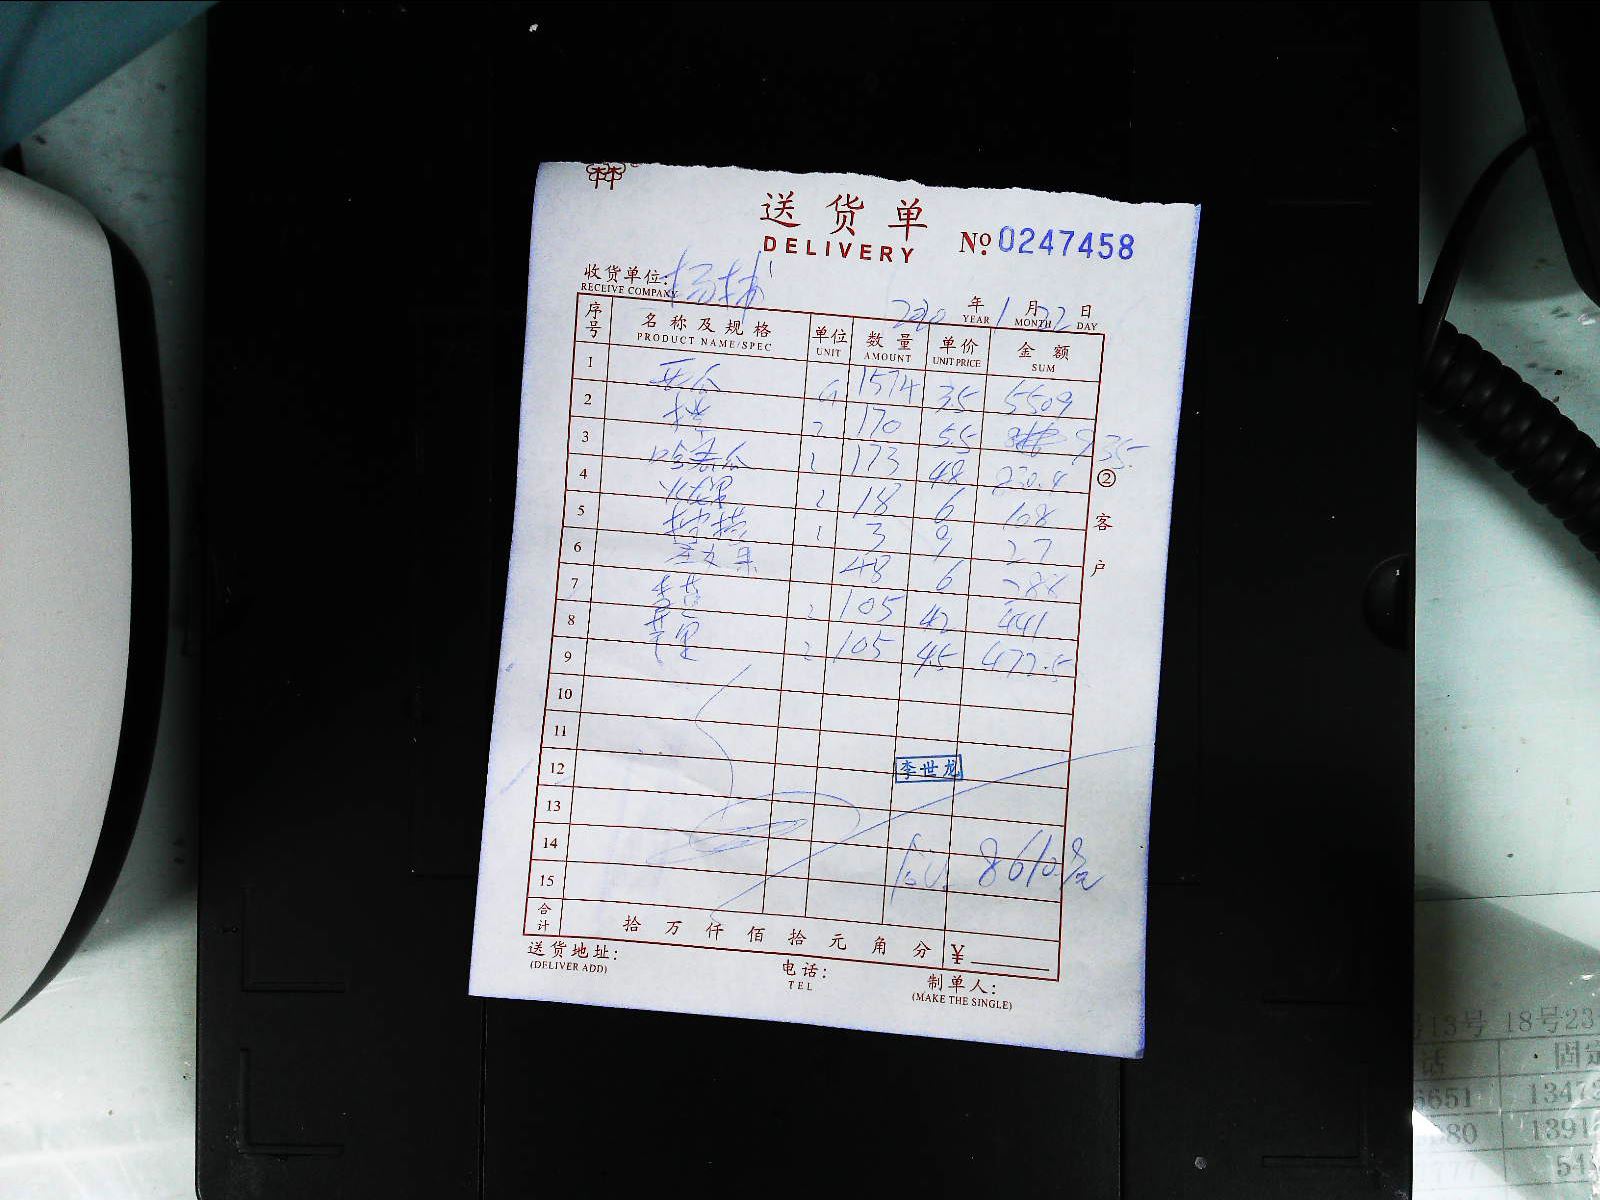 送货单
DELIVERY
No. 0247458
收货单位: 杨林
RECEIVE COMPANY
2020 年 1 月 22 日
YEAR MONTH DAY
序号 名称及规格 单位 数量 单价 金额
PRODUCT NAME/SPEC UNIT AMOUNT UNIT PRICE SUM
1 西瓜 1574 3.5 5509
2 170 5.5 935
3 哈密瓜 173 4.8 830.4
4 火龙果 18 6 108
5 3 9 27
6 48 6 288
7 香蕉 105 4.2 441
8 苹果 105 4.5 472.5
9
10
11
12 李世龙
13
14 8610.9元
15
合计 拾 万 仟 佰 拾 元 角 分 ¥
②客户
送货地址: 电话: 制单人:
(DELIVER ADD) TEL (MAKE THE SINGLE)
号13号 18号23
话 固定
6651 13473
80 1391
777 54